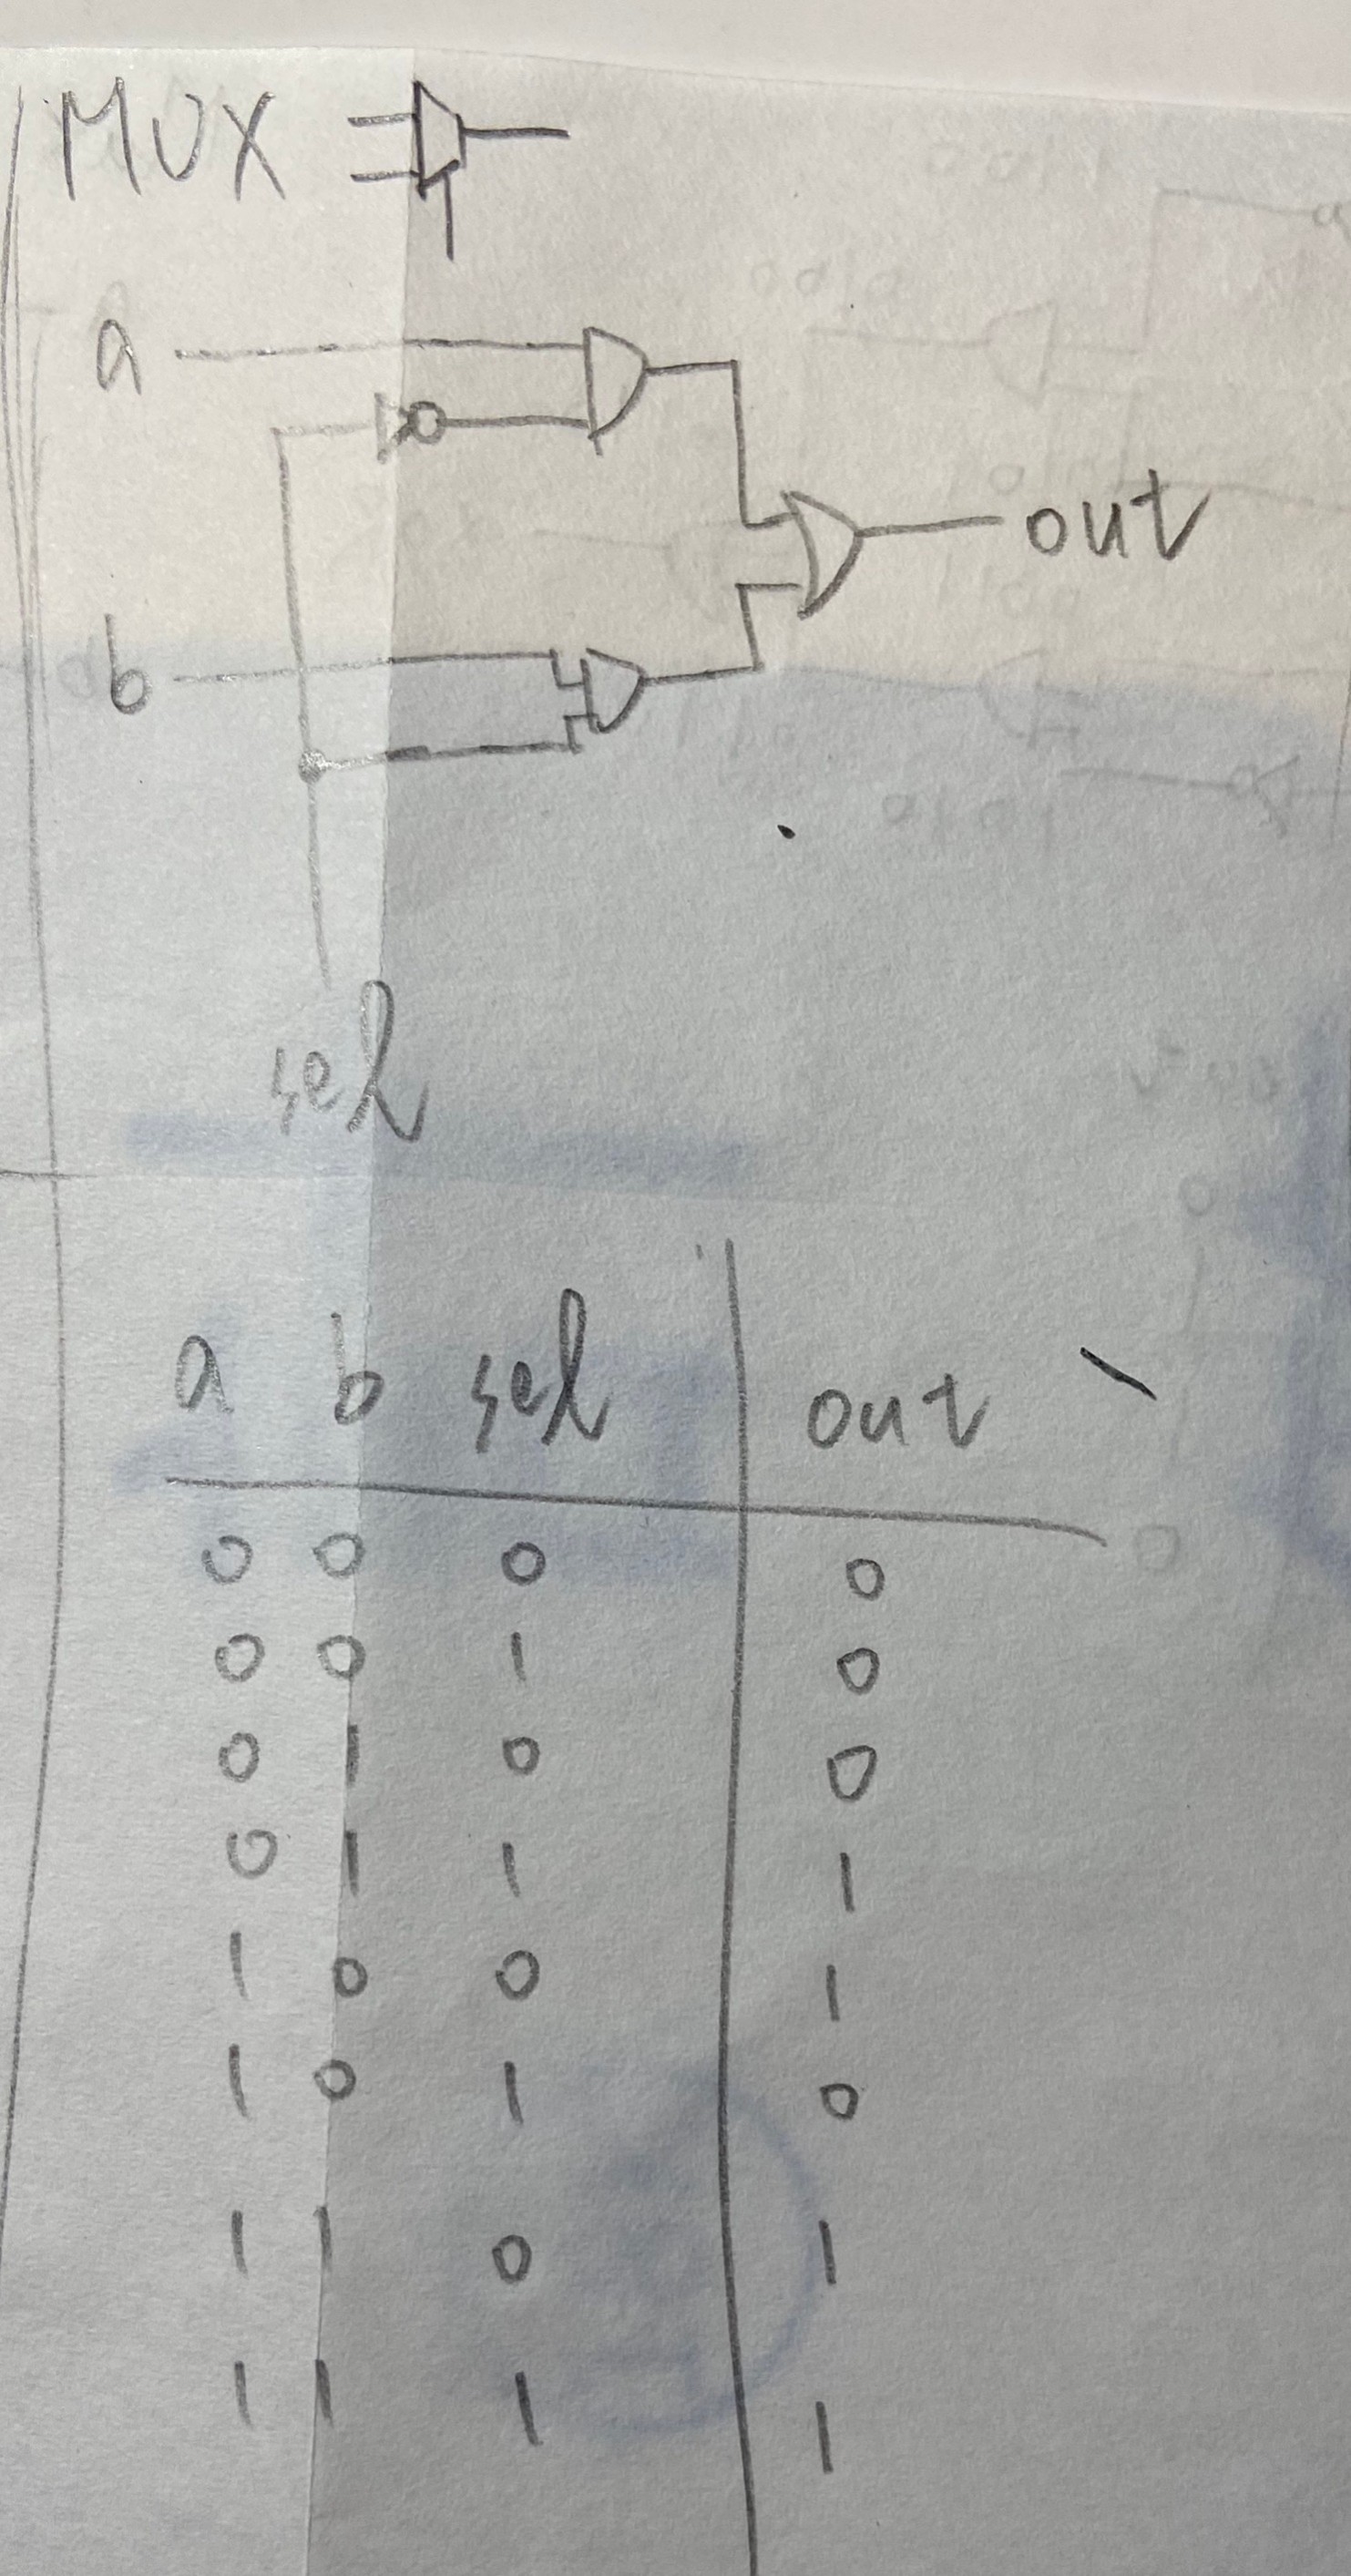 MUX
a
out
b
sel
a b sel out
0 0 0 0
0 0 1 0
0 1 0 0
0 1 1 1
1 0 0 1
1 0 1 0
1 1 0 1
1 1 1 1